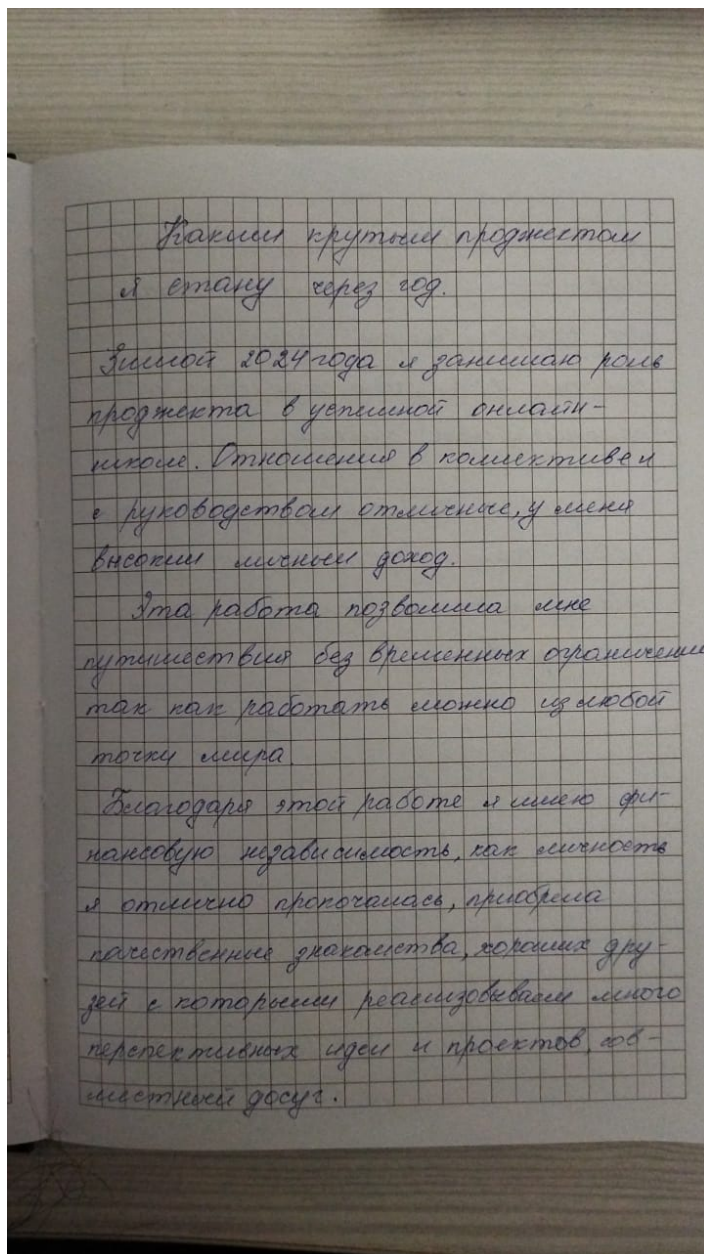 Каким крутым проджектом
я стану через год.
Зимой 2024 года я занимаю роль
проджекта в успешной онлайн-
школе. Отношения в коллективе и
с руководством отличные, у меня
высокий личный доход.
Эта работа позволила мне
путишествия без временных ограничений
так как работать можно из любой
точки мира.
Благодаря этой работе я имею фи-
нансовую независимость, как личность
я отлично прокочалась, приобрела
качественные знакомства, хороших дру-
зей с которыми реализовываем много
перспективных идей и проектов, сов-
местный досуг.